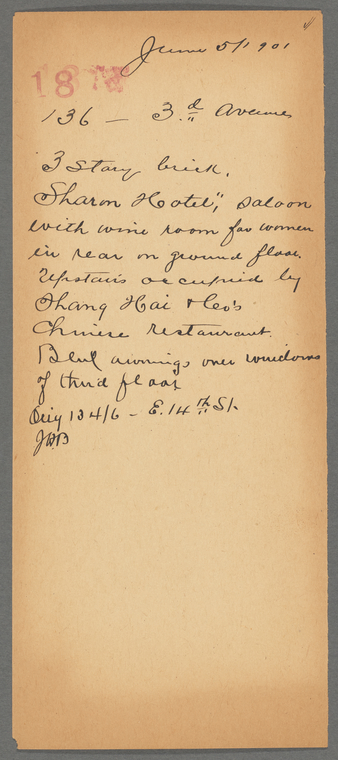 June 5/1901
18
136 — 3.d Avenue
3 story brick.
"Sharon Hotel", saloon
with wine room for women
in rear on ground floor.
Upstairs occupied by
Shang Hai & Co's
Chinese restaurant.
Blue awnings over windows
of third floor
134/6 — E. 14th St.